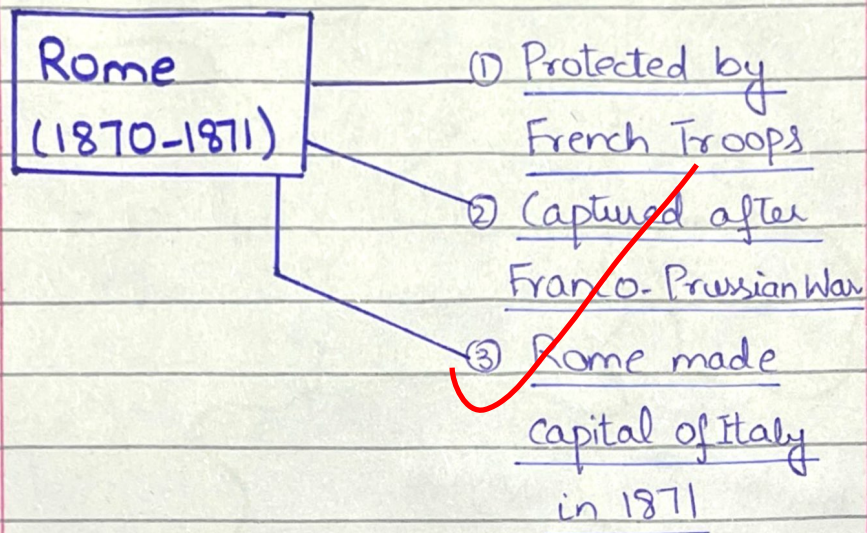 Rome
(1870-1871)
① Protected by
French Troops
② Captured after
Franco-Prussian War
③ Rome made
capital of Italy
in 1871